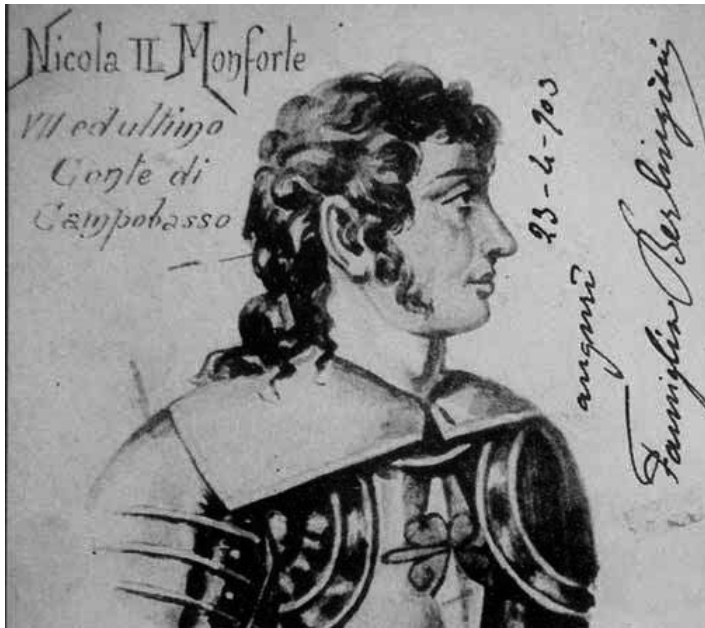 Nicola II Monforte
VII ed ultimo
Conte di
Campobasso
23-4-903
auguri
Famiglia Berlingieri